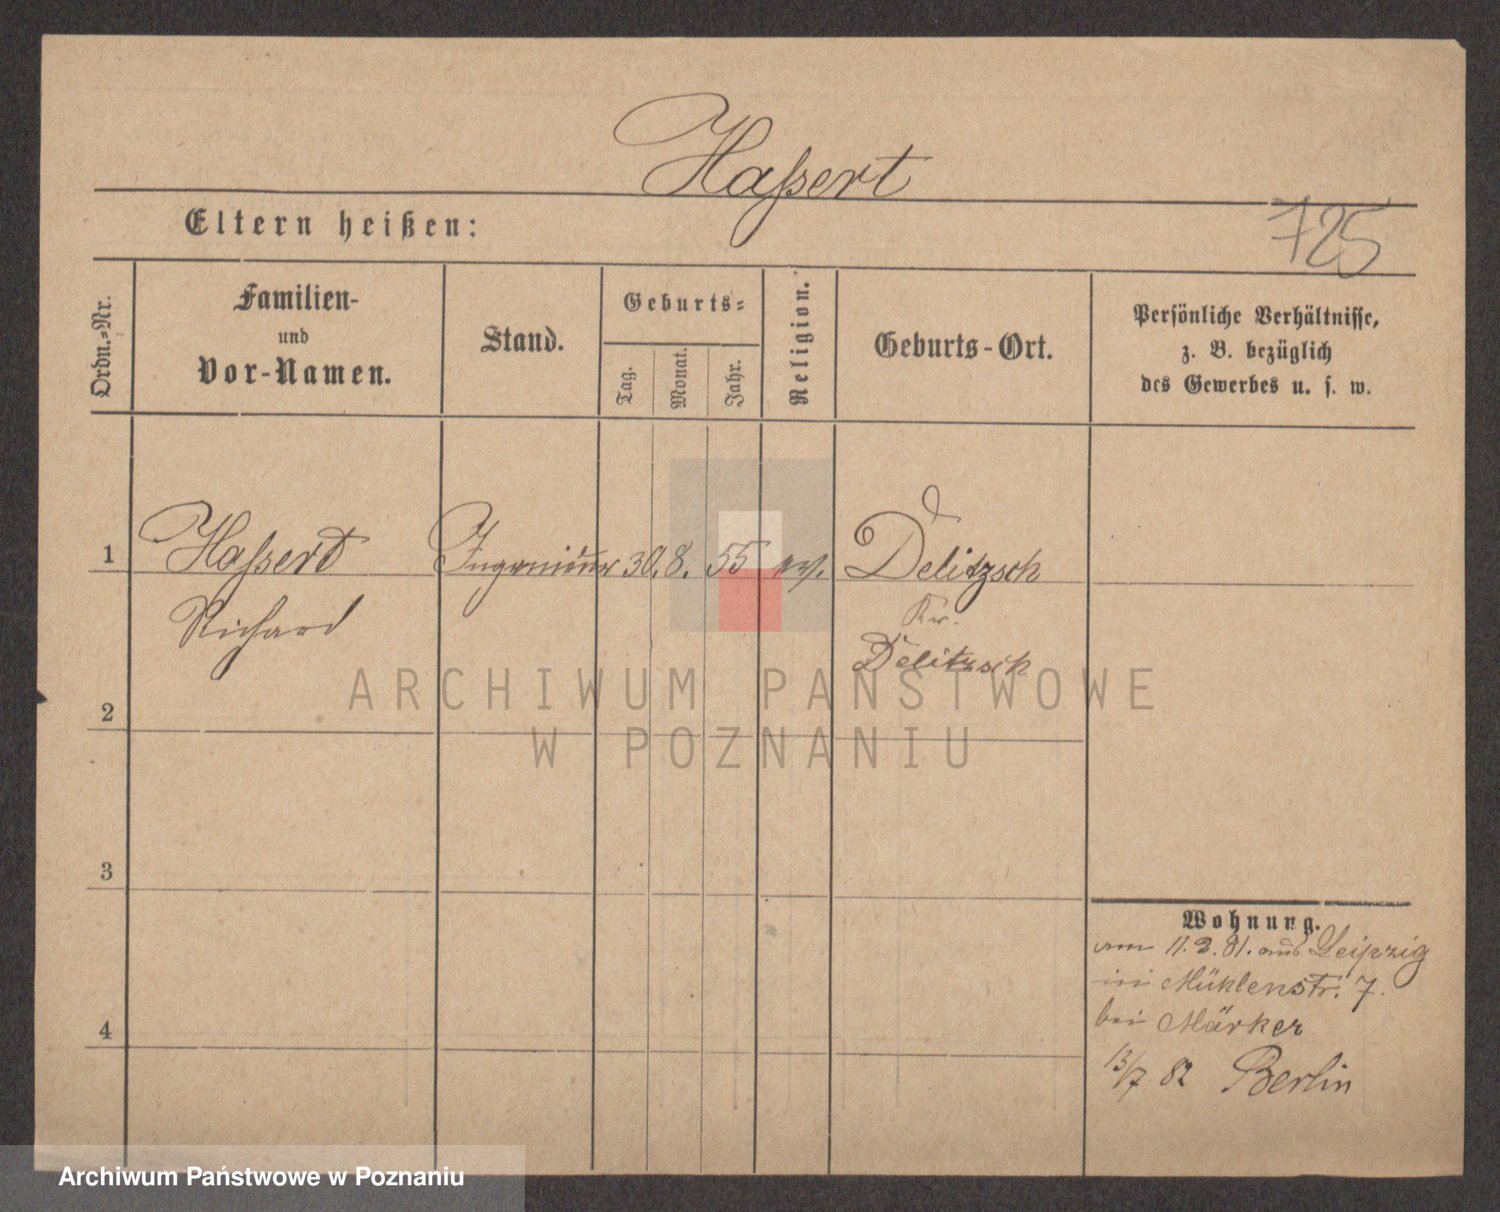 Haßert
Eltern heißen:
725
Ordn.-Nr.
Familien-
und
Vor-Namen.
Stand.
Geburts-
Tag.
Monat.
Jahr.
Religion.
Geburts-Ort.
Persönliche Verhältnisse,
z. B. bezüglich
des Gewerbes u. s. w.
1 Haßert Ingenieur 30. 8. 55 ev. Delitzsch
Richard Kr.
Delitzsch
2
3
4
Wohnung.
am 11.2.81. aus Leipzig
in Mühlenstr. 7.
bei Märker
13/7 82 Berlin
ARCHIWUM PAŃSTWOWE
W POZNANIU
Archiwum Państwowe w Poznaniu